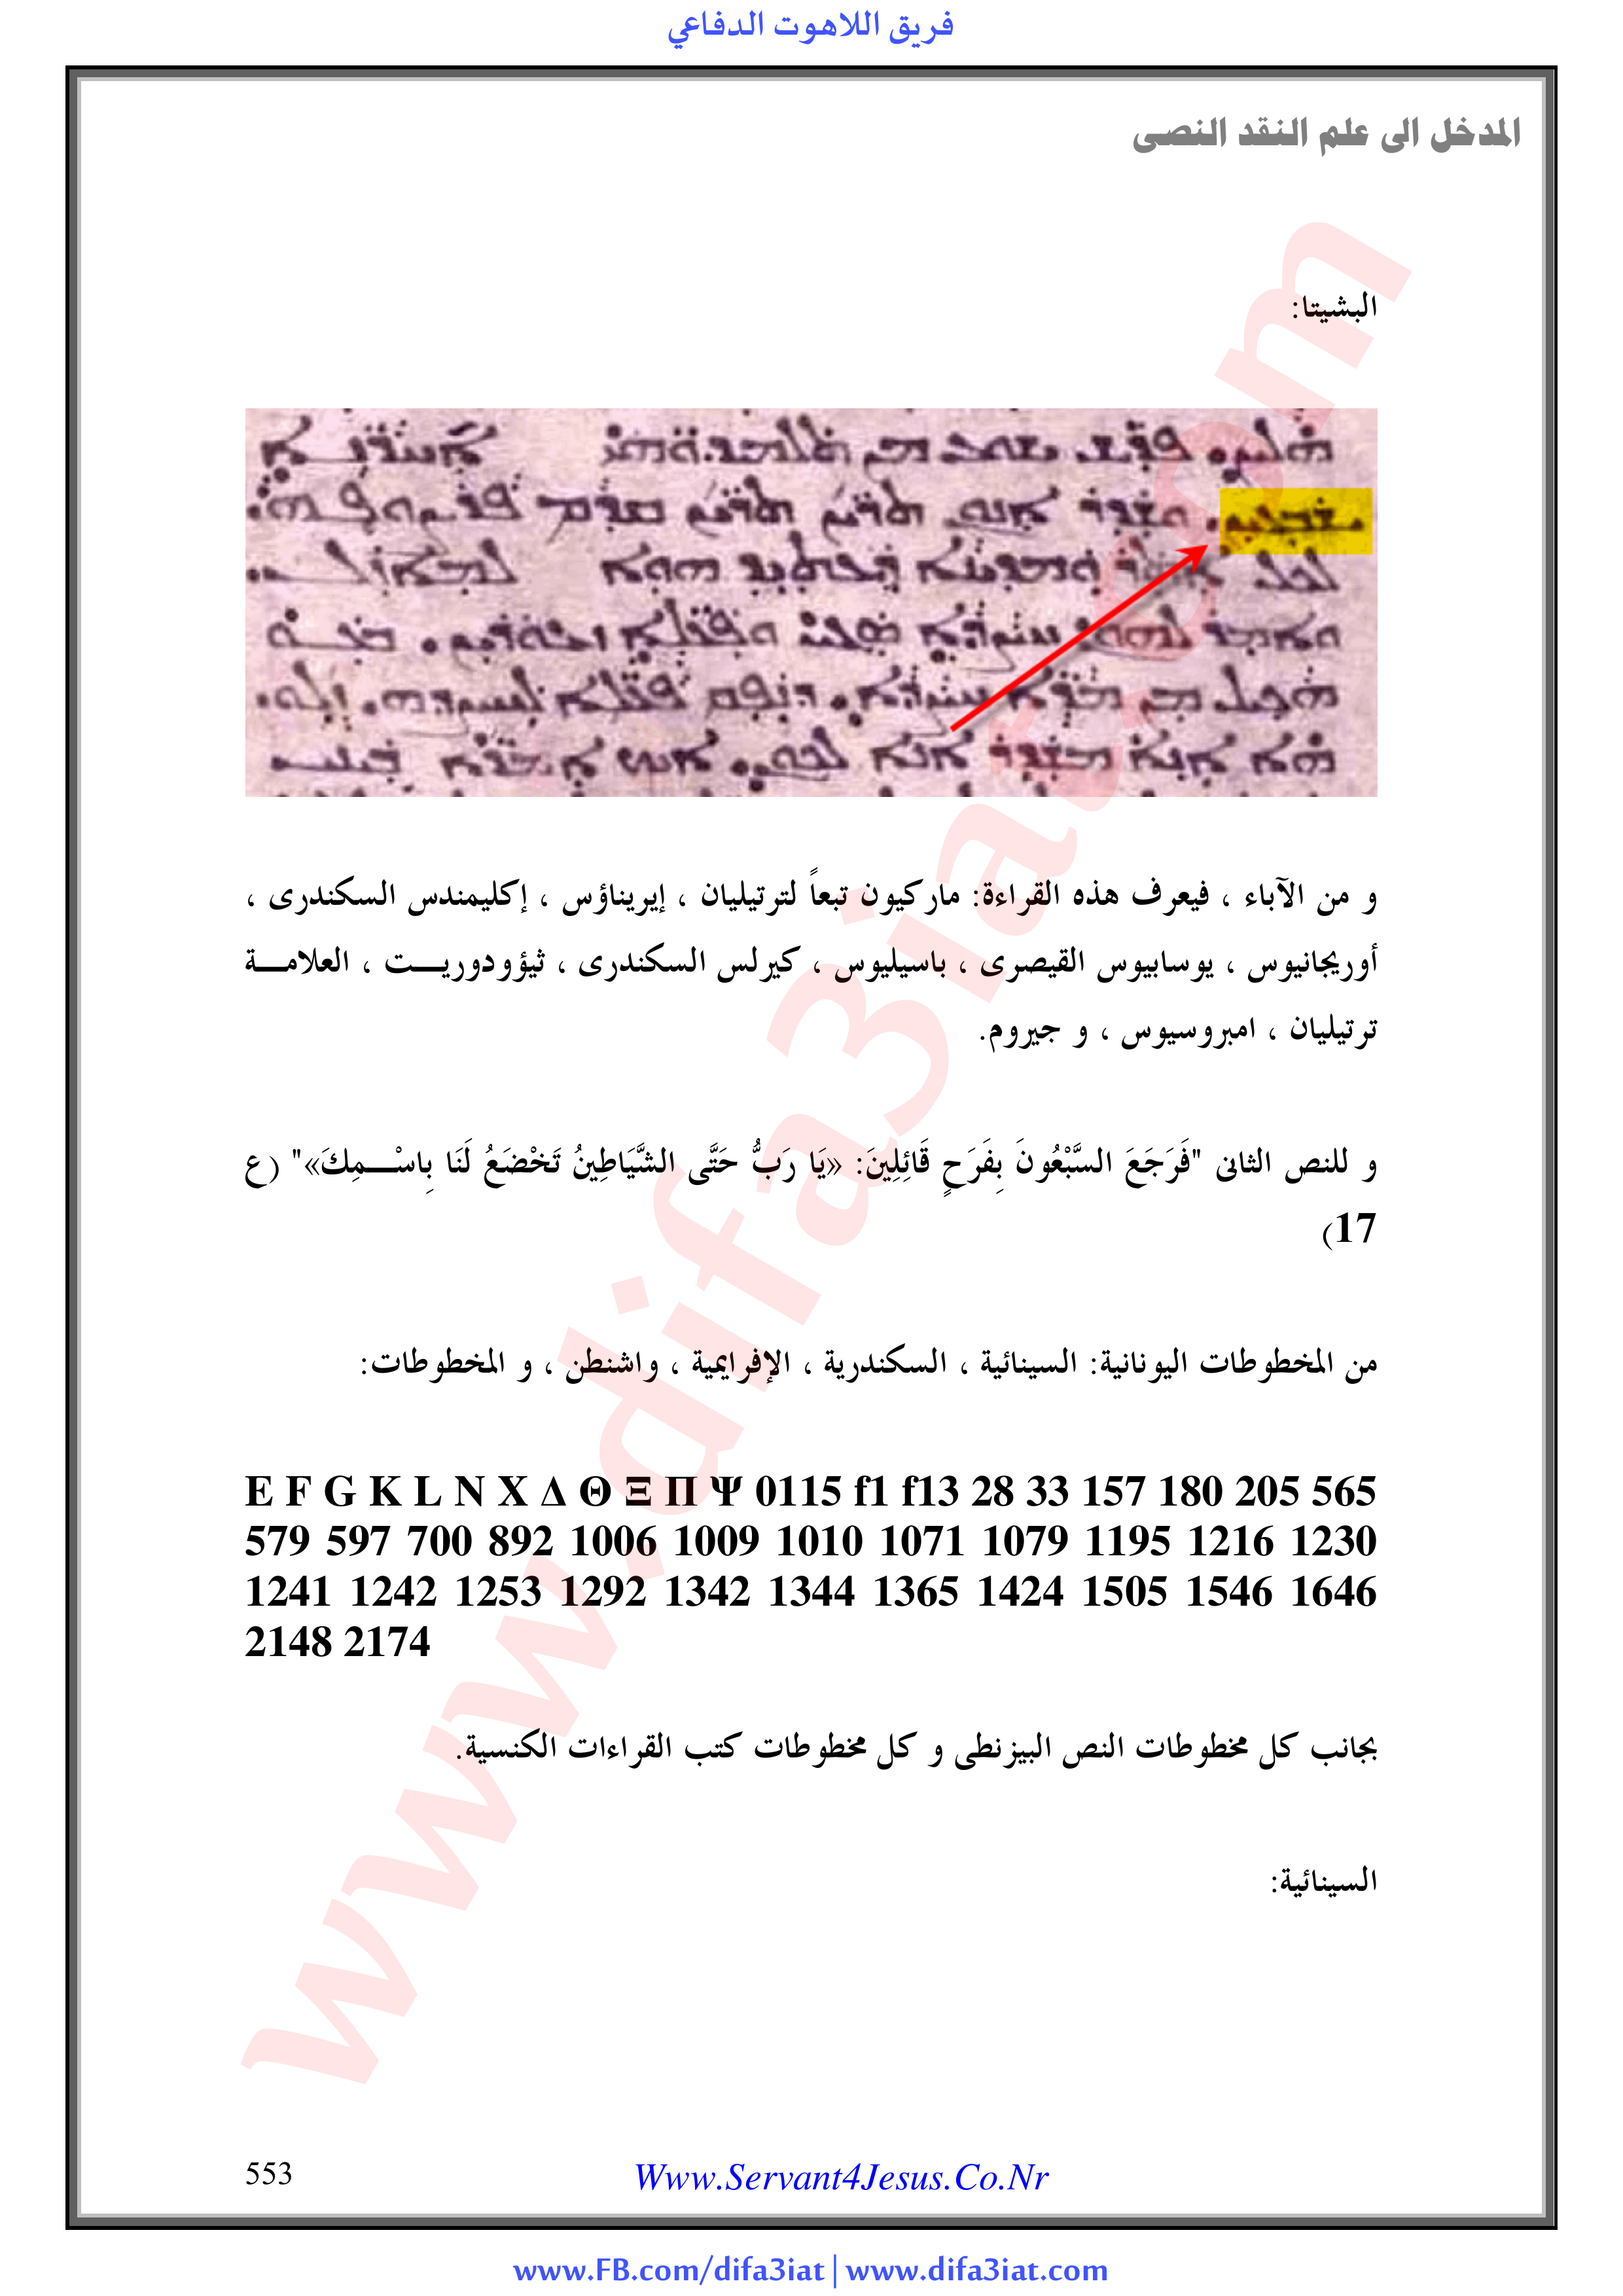 فريق اللاهوت الدفاعي
المدخل الى علم النقد النصى
البشيتا:
و من الآباء ، فيعرف هذه القراءة: ماركيون تبعاً لترتيليان ، إيريناؤس ، إكليمندس السكندرى ،
أوريجانيوس ، يوسابيوس القيصرى ، باسيليوس ، كيرلس السكندرى ، ثيؤودوريـــت ، العلامـــة
ترتيليان ، امبروسيوس ، و جيروم.
و للنص الثانى "فَرَجَعَ السَّبْعُونَ بِفَرَحٍ قَائِلِينَ: «يَا رَبُّ حَتَّى الشَّيَاطِينُ تَخْضَعُ لَنَا بِاسْـــمِكَ»" (ع
17)
من المخطوطات اليونانية: السينائية ، السكندرية ، الإفرايمية ، واشنطن ، و المخطوطات:
E F G K L N X Δ Θ Ξ Π Ψ 0115 f1 f13 28 33 157 180 205 565
579 597 700 892 1006 1009 1010 1071 1079 1195 1216 1230
1241 1242 1253 1292 1342 1344 1365 1424 1505 1546 1646
2148 2174
بجانب كل مخطوطات النص البيزنطى و كل مخطوطات كتب القراءات الكنسية.
السينائية:
www.difa3iat.com
553
Www.Servant4Jesus.Co.Nr
www.FB.com/difa3iat | www.difa3iat.com